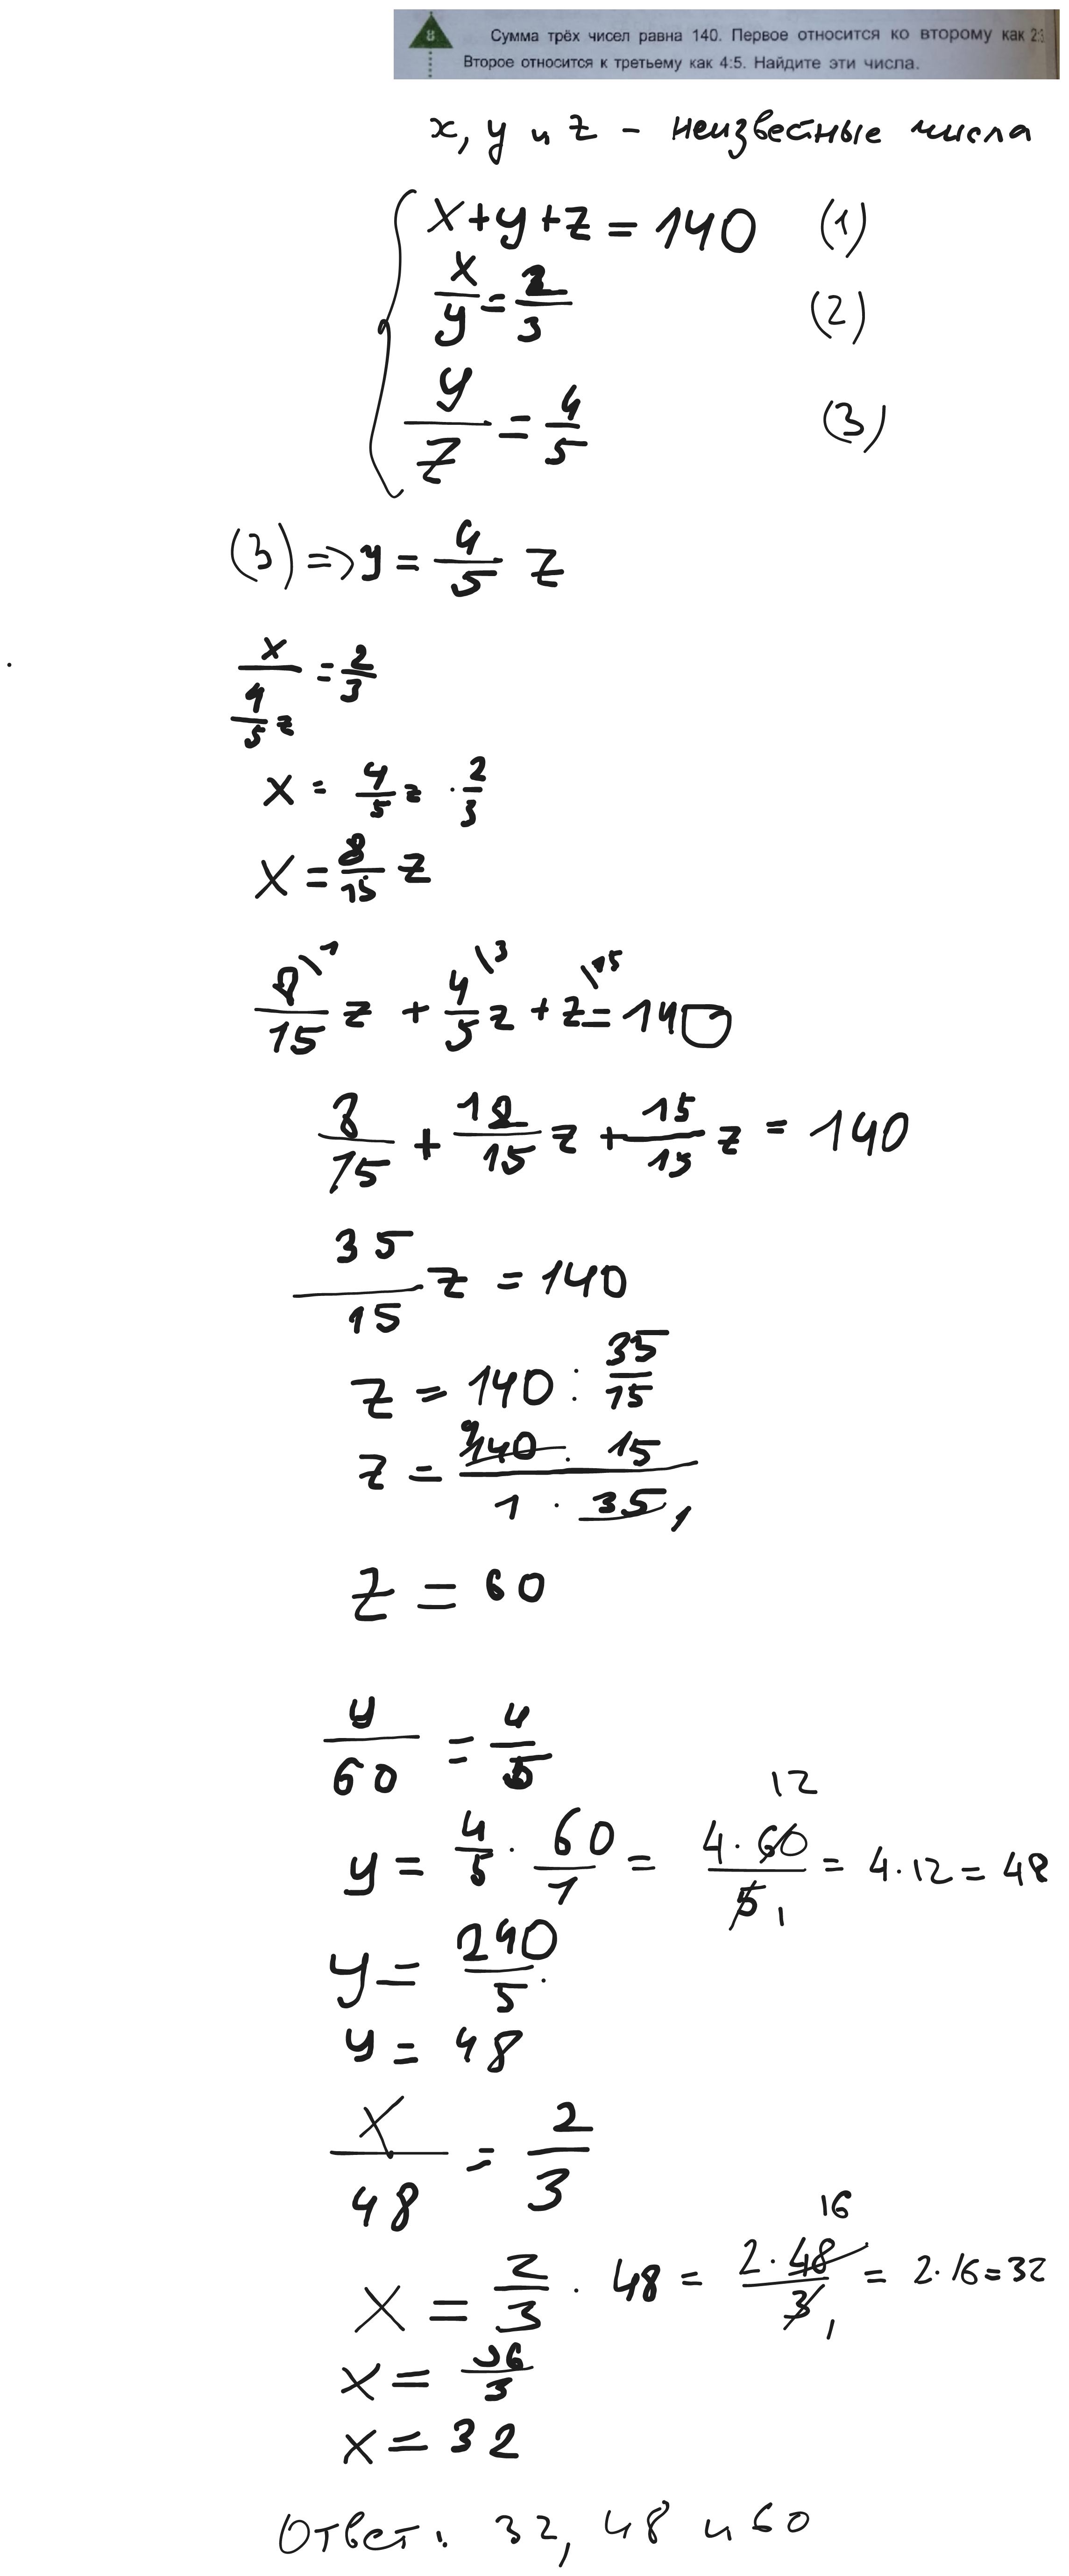 8 Сумма трёх чисел равна 140. Первое относится ко второму как 2:3
Второе относится к третьему как 4:5. Найдите эти числа.
x, y и z – неизвестные числа
x+y+z=140 (1)
x/y=2/3 (2)
y/z=4/5 (3)
(3) => y=4/5 z
x/(4/5 z)=2/3
x=4/5 z·2/3
x=8/15 z
8\1/15 z+4\3/5 z+z\15=140
8/15+12/15 z+15/15 z=140
35/15 z=140
z=140:35/15
z=140·15/1·35 1
z=60
y/60=4/5
12
y=4/5·60/1=4·60/5 1=4·12=48
y=240/5
y=48
x/48=2/3
16
x=2/3·48=2·48/3 1=2·16=32
x=96/3
x=32
Ответ: 32, 48 и 60